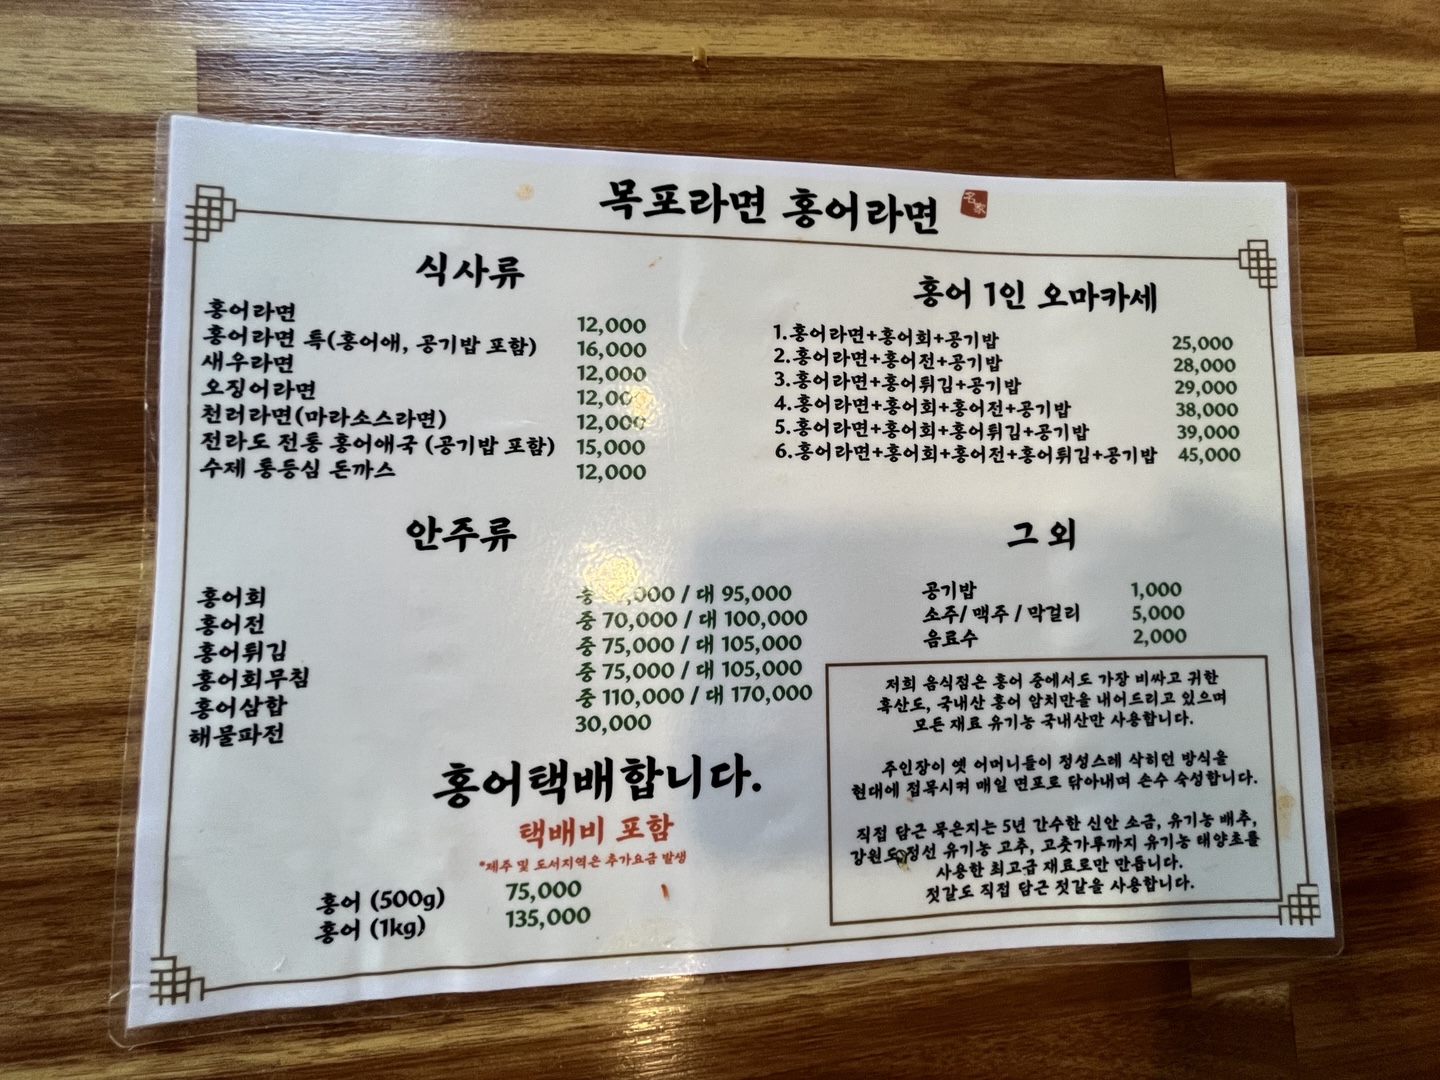 목포라면 홍어라면
名家
식사류
홍어라면 12,000
홍어라면 특(홍어애, 공기밥 포함) 16,000
새우라면 12,000
오징어라면 12,000
천러라면(마라소스라면) 12,000
전라도 전통 홍어애국 (공기밥 포함) 15,000
수제 통등심 돈까스 12,000
홍어 1인 오마카세
1.홍어라면+홍어회+공기밥 25,000
2.홍어라면+홍어전+공기밥 28,000
3.홍어라면+홍어튀김+공기밥 29,000
4.홍어라면+홍어회+홍어전+공기밥 38,000
5.홍어라면+홍어회+홍어튀김+공기밥 39,000
6.홍어라면+홍어회+홍어전+홍어튀김+공기밥 45,000
안주류
홍어회 중 / 대 95,000
홍어전 중 70,000 / 대 100,000
홍어튀김 중 75,000 / 대 105,000
홍어회무침 중 75,000 / 대 105,000
홍어삼합 중 110,000 / 대 170,000
해물파전 30,000
그 외
공기밥 1,000
소주/ 맥주 / 막걸리 5,000
음료수 2,000
홍어택배합니다.
택배비 포함
*제주 및 도서지역은 추가요금 발생
홍어 (500g) 75,000
홍어 (1kg) 135,000
저희 음식점은 홍어 중에서도 가장 비싸고 귀한
흑산도, 국내산 홍어 암치만을 내어드리고 있으며
모든 재료 유기농 국내산만 사용합니다.
주인장이 옛 어머니들이 정성스레 삭히던 방식을
현대에 접목시켜 매일 면포로 닦아내며 손수 숙성합니다.
직접 담근 묵은지는 5년 간수한 신안 소금, 유기농 배추,
강원도 정선 유기농 고추, 고춧가루까지 유기농 태양초를
사용한 최고급 재료로만 만듭니다.
젓갈도 직접 담근 젓갈을 사용합니다.